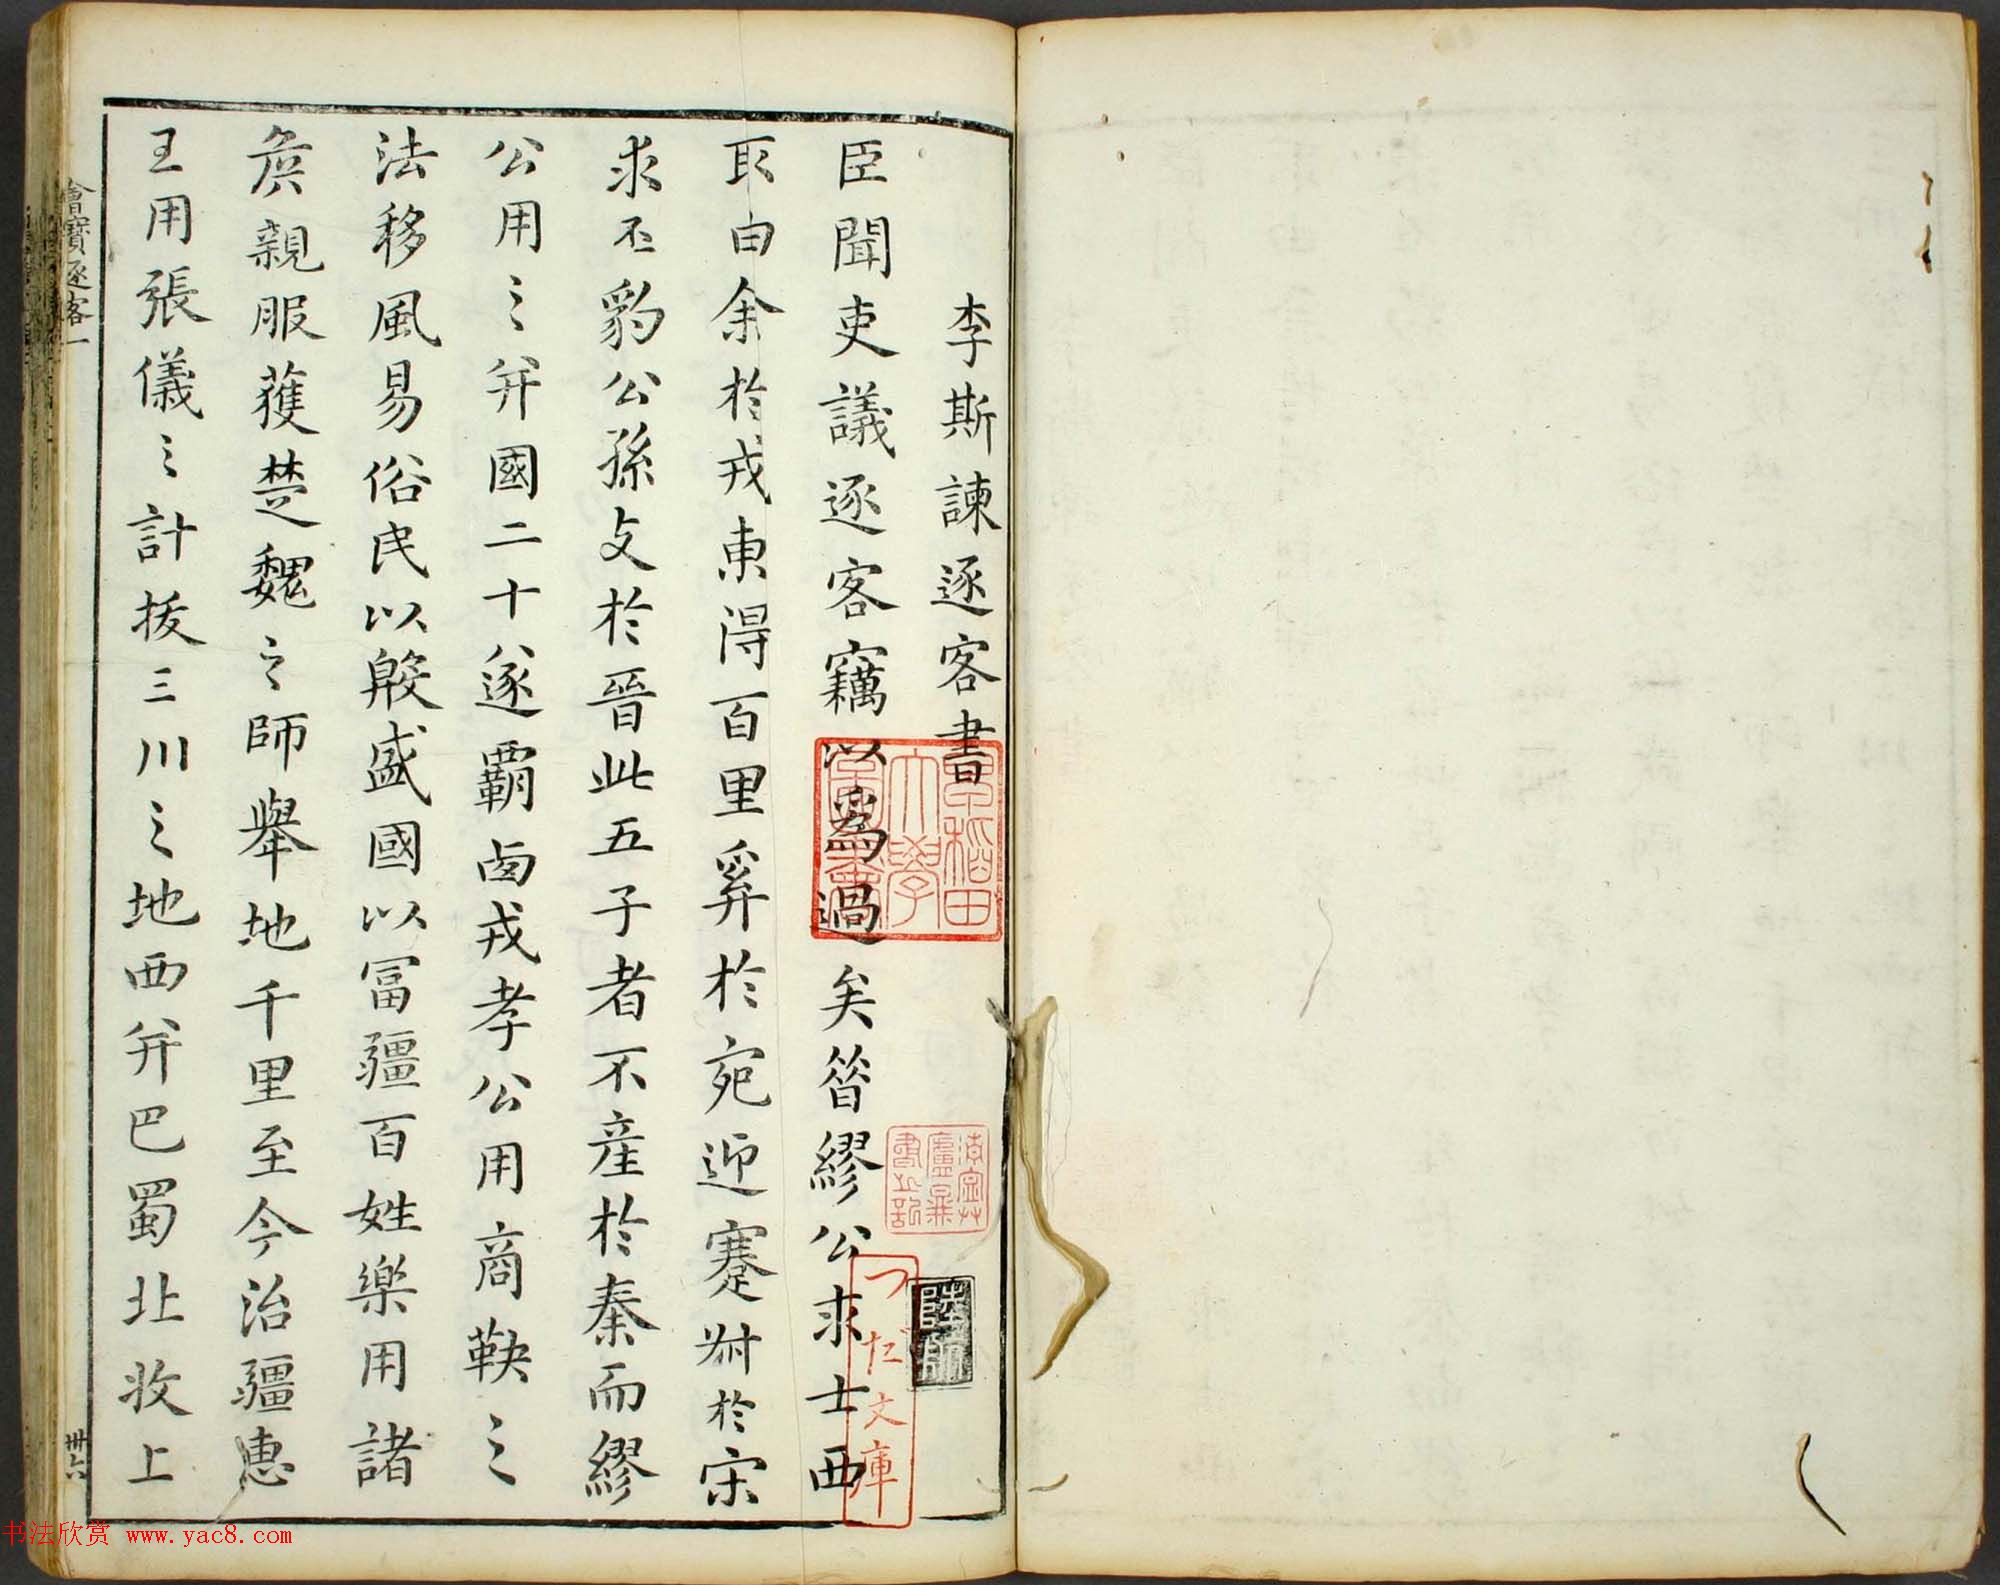 李斯諫逐客書
臣聞吏議逐客竊以為過矣昝繆公求士西
取由余於戎東得百里奚於宛迎蹇叔於宋
求丕豹公孫支於晉此五子者不產於秦而繆
公用之并國二十遂霸西戎孝公用商鞅之
法移風易俗民以殷盛國以冨疆百姓樂用諸
矦親服獲楚魏之師舉地千里至今治疆惠
王用張儀之計拔三川之地西并巴蜀北收上
會寶逐客一
卅六
早稻田
大學
つだ文庫
陸師
书法欣赏 www.yac8.com